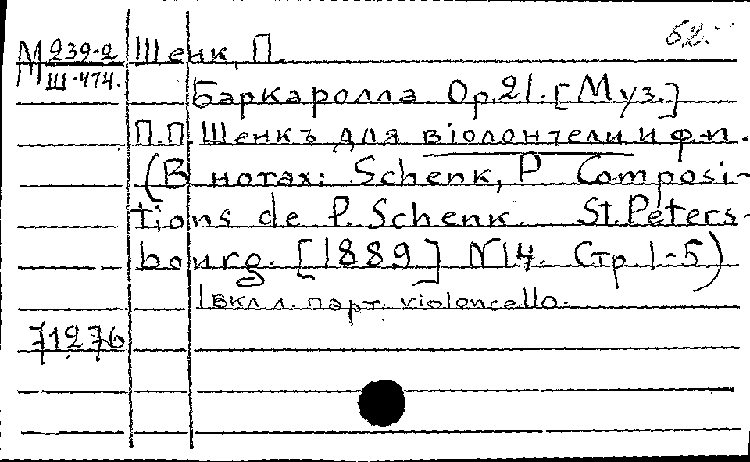 М 239-2 Шенк, П. 62.
Ш-474.
Баркаролла Ор.21. [Муз.]
П.П. Шенкъ для віолончели и ф.п.
(В нотах: Schenk, P Composi-
tions de P. Schenk. St. Peters-
bourg. [1889] N14. Стр. 1-5)
1 вкл л. парт. violoncello.
71276